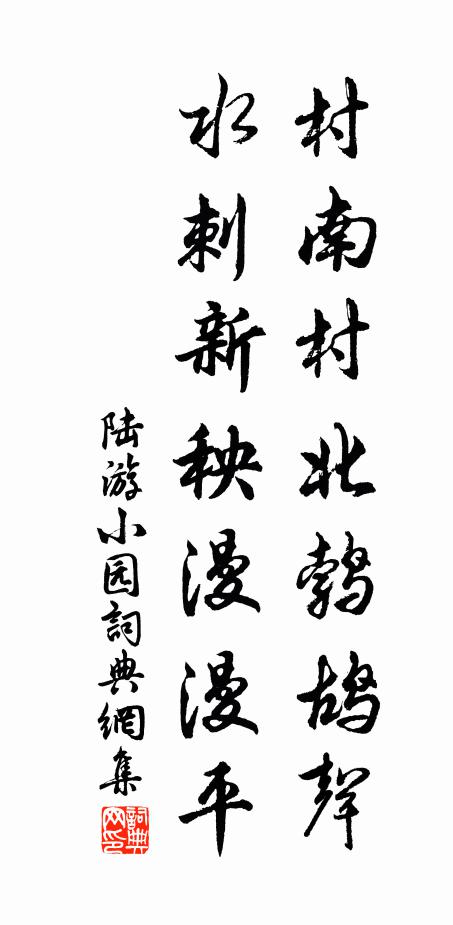 村南村北鹁鸪聲
水刺新秧漫漫平
陆游小园詞典網集
詞典网印